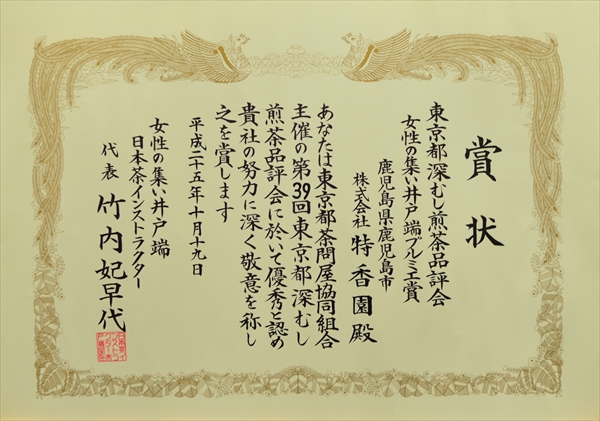 賞状
東京都深むし煎茶品評会
女性の集い井戸端プルミエ賞
鹿児島県鹿児島市
株式会社 特香園殿
あなたは東京都茶問屋協同組合
主催の第39回東京都深むし
煎茶品評会に於いて優秀と認め
貴社の努力に深く敬意を称し
之を賞します
平成二十五年十月十九日
女性の集い井戸端
日本茶インストラクター
代表 竹内妃早代